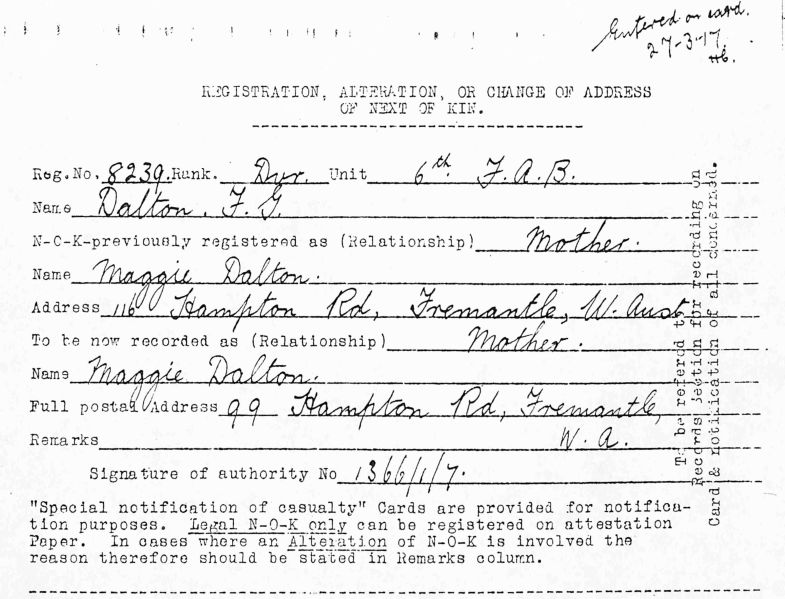 Entered on card.
27-3-17
Hb.
REGISTRATION, ALTERATION, OR CHANGE OF ADDRESS
OF NEXT OF KIN.
Reg.No. 8239. Rank. Dvr. Unit 6th F.A.B.
Name Dalton. F. G.
N-O-K-previously registered as (Relationship) Mother.
Name Maggie Dalton.
Address 116 Hampton Rd, Fremantle, W. Aust
To be now recorded as (Relationship) Mother.
Name Maggie Dalton.
Full postal Address 99 Hampton Rd, Fremantle,
Remarks W. A.
Signature of authority No 1366/1/7.
"Special notification of casualty" Cards are provided for notifica-
tion purposes. Legal N-O-K only can be registered on attestation
Paper. In cases where an Alteration of N-O-K is involved the
reason therefore should be stated in Remarks column.
To be referred to
Records Section for recording on
Card & notification of all concerned.